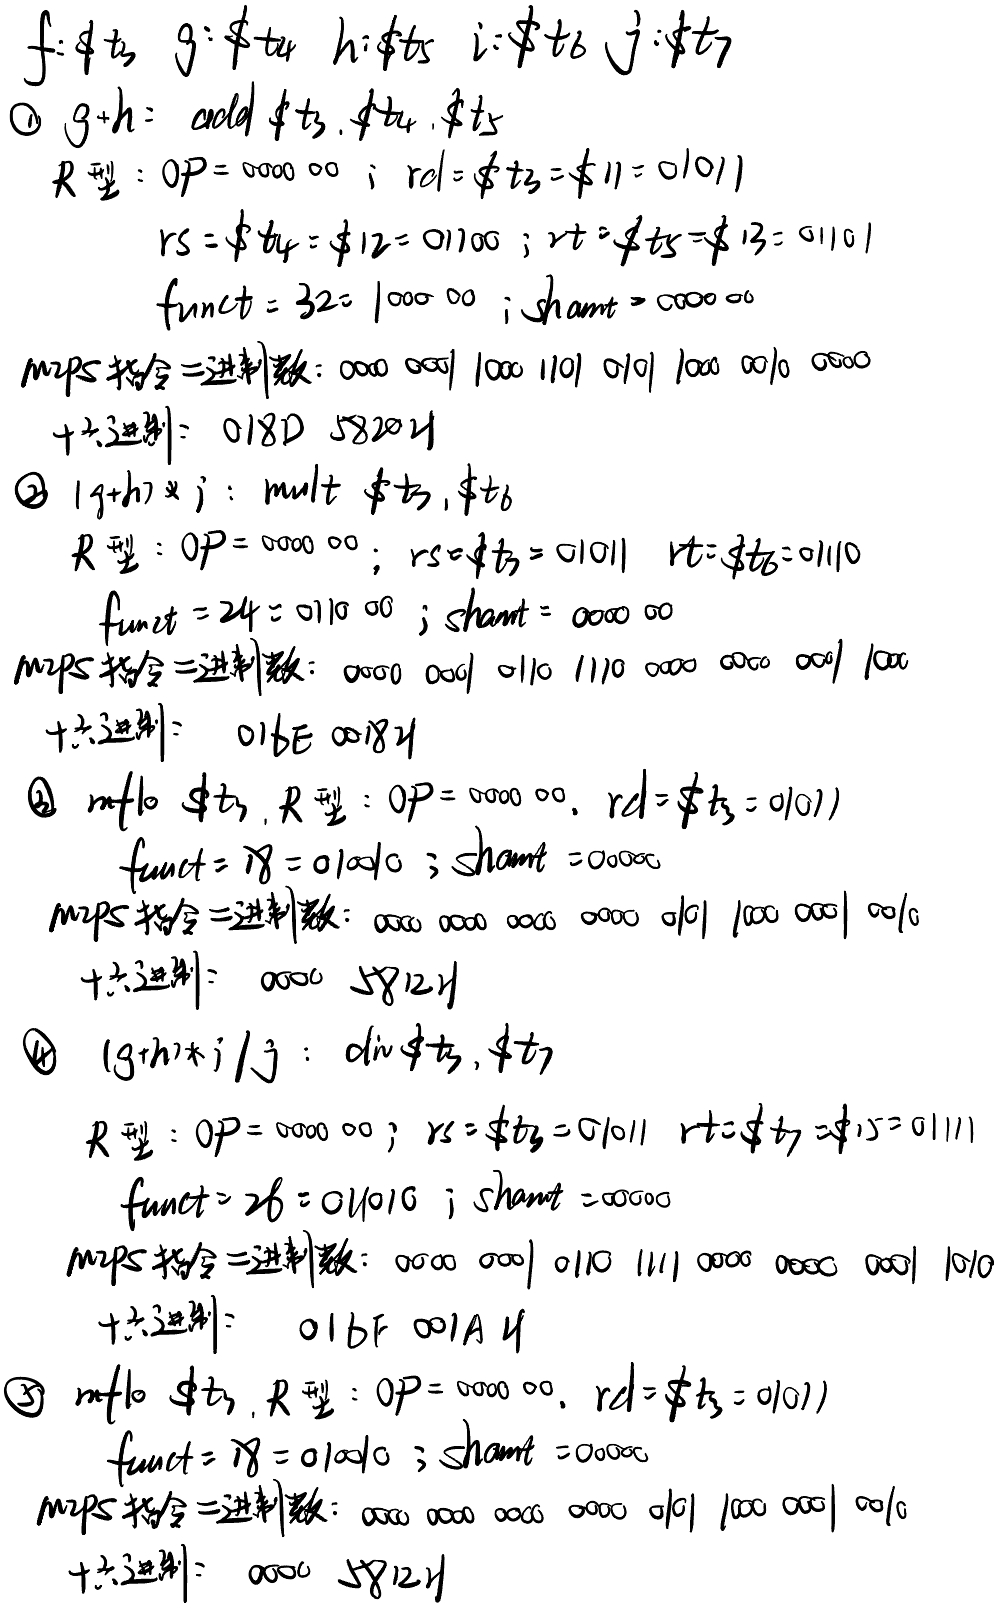 f:$t3 g:$t4 h:$t5 i:$t6 j:$t7
① g+h: add $t3,$t4,$t5
R型:OP=000000; rd=$t3=$11=01011
rs=$t4=$12=01100; rt=$t5=$13=01101
funct=32=100000; shamt=000000
MIPS指令二进制数: 0000 0001 1000 1101 0101 1000 0010 0000
十六进制: 018D 5820H
② (g+h)*i: mult $t3,$t6
R型:OP=000000; rs=$t3=01011 rt=$t6=01110
funct=24=011000; shamt=000000
MIPS指令二进制数: 0000 0001 0110 1110 0000 0000 0001 1000
十六进制: 016E 0018H
③ mflo $t3, R型:OP=000000. rd=$t3=01011
funct=18=010010; shamt=00000
MIPS指令二进制数: 0000 0000 0000 0000 0101 1000 0001 0010
十六进制: 0000 5812H
④ (g+h)*i/j: div $t3,$t7
R型:OP=000000; rs=$t3=01011 rt=$t7=$15=01111
funct=26=011010; shamt=00000
MIPS指令二进制数: 0000 0001 0110 1111 0000 0000 0001 1010
十六进制: 016F 001AH
⑤ mflo $t3, R型:OP=000000. rd=$t3=01011
funct=18=010010; shamt=00000
MIPS指令二进制数: 0000 0000 0000 0000 0101 1000 0001 0010
十六进制: 0000 5812H